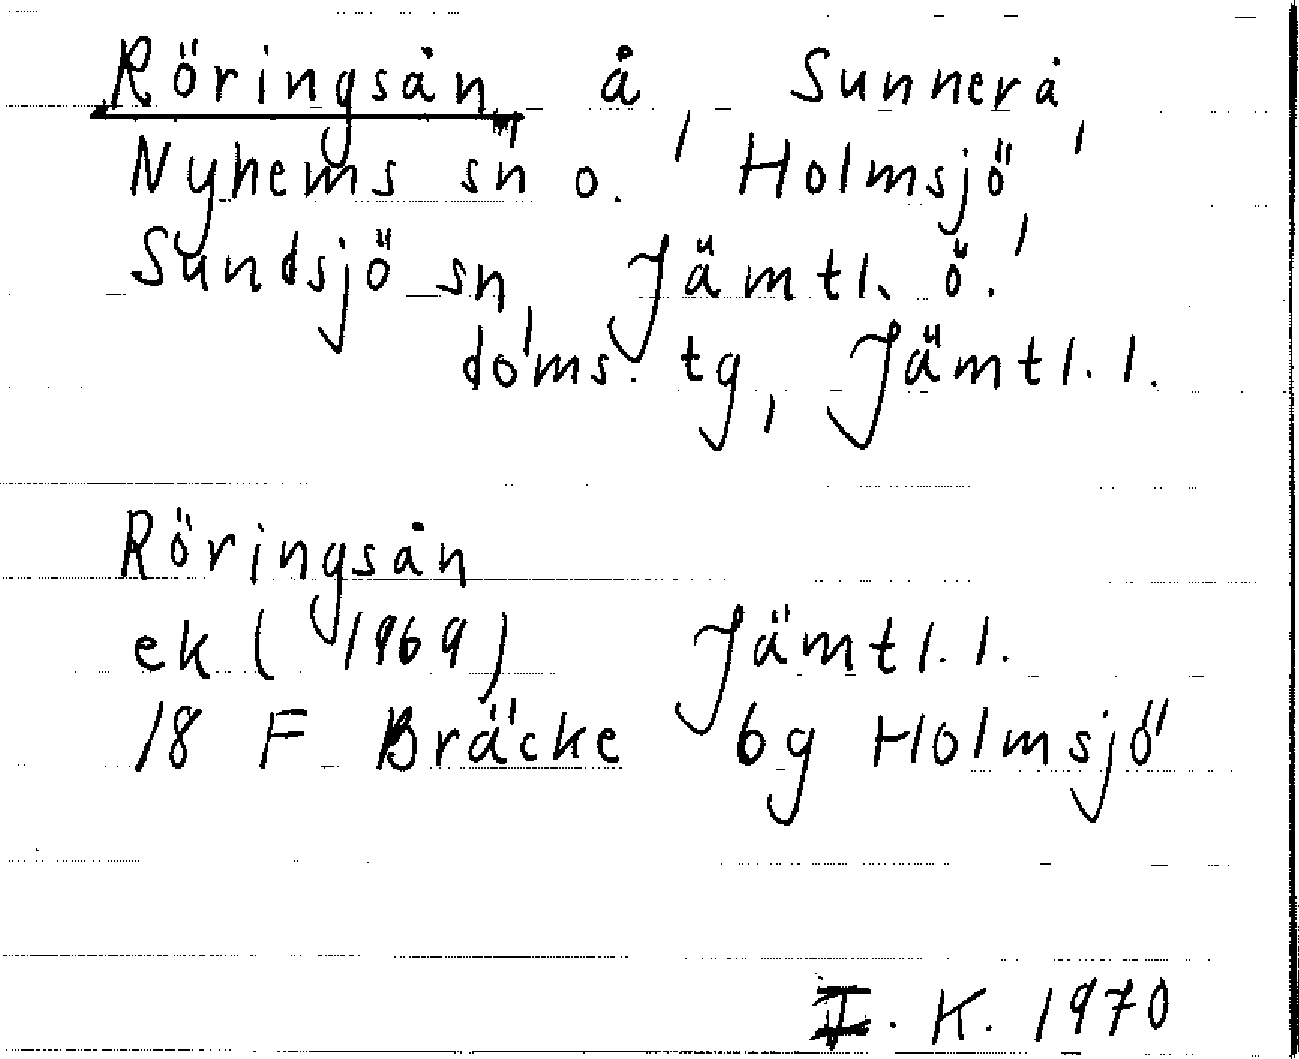 Röringsån å, Sunnerå,
Nyhems sn o. Holmsjö,
Sundsjö sn, Jämtl. ö.
doms. tg, Jämtl. l.
Röringsån
ek (1969) Jämtl. l.
18 F Bräcke 6g Holmsjö
K. 1970